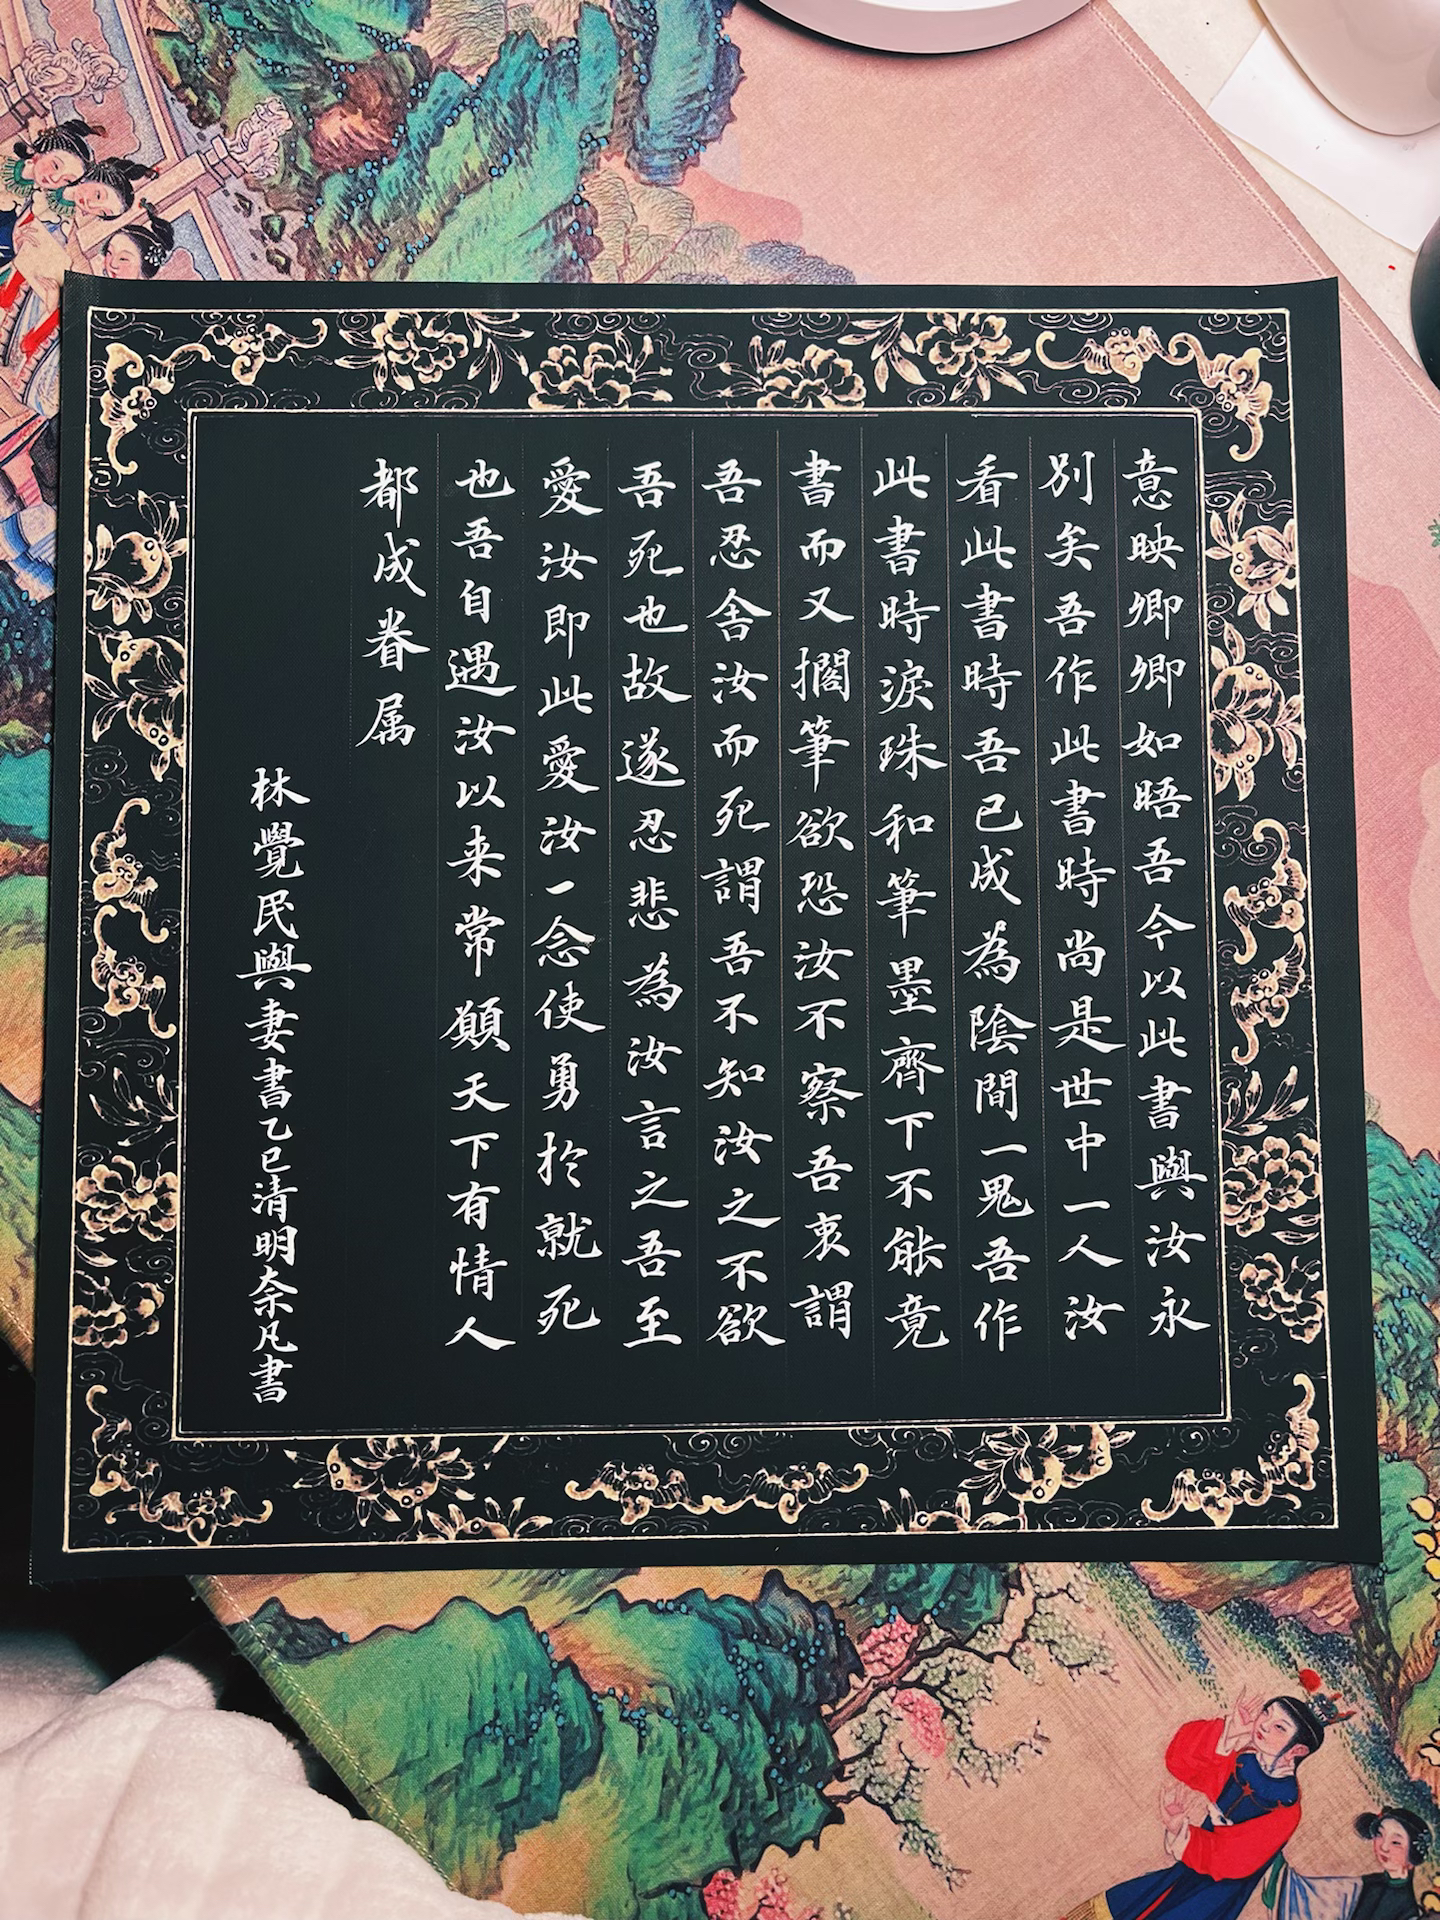 意映卿卿如晤吾今以此書與汝永
別矣吾作此書時尚是世中一人汝
看此書時吾已成為陰間一鬼吾作
此書時淚珠和筆墨齊下不能竟
書而又擱筆欲恐汝不察吾衷謂
吾忍舍汝而死謂吾不知汝之不欲
吾死也故遂忍悲為汝言之吾至
愛汝即此愛汝一念使勇於就死
也吾自遇汝以来常願天下有情人
都成眷属
林覺民與妻書乙巳清明奈凡書